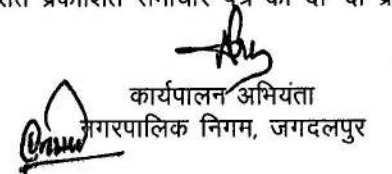 प्रकाशित समाचार पत्र की दो-दो
कार्यपालन अभियंता
नगरपालिक निगम, जगदलपुर